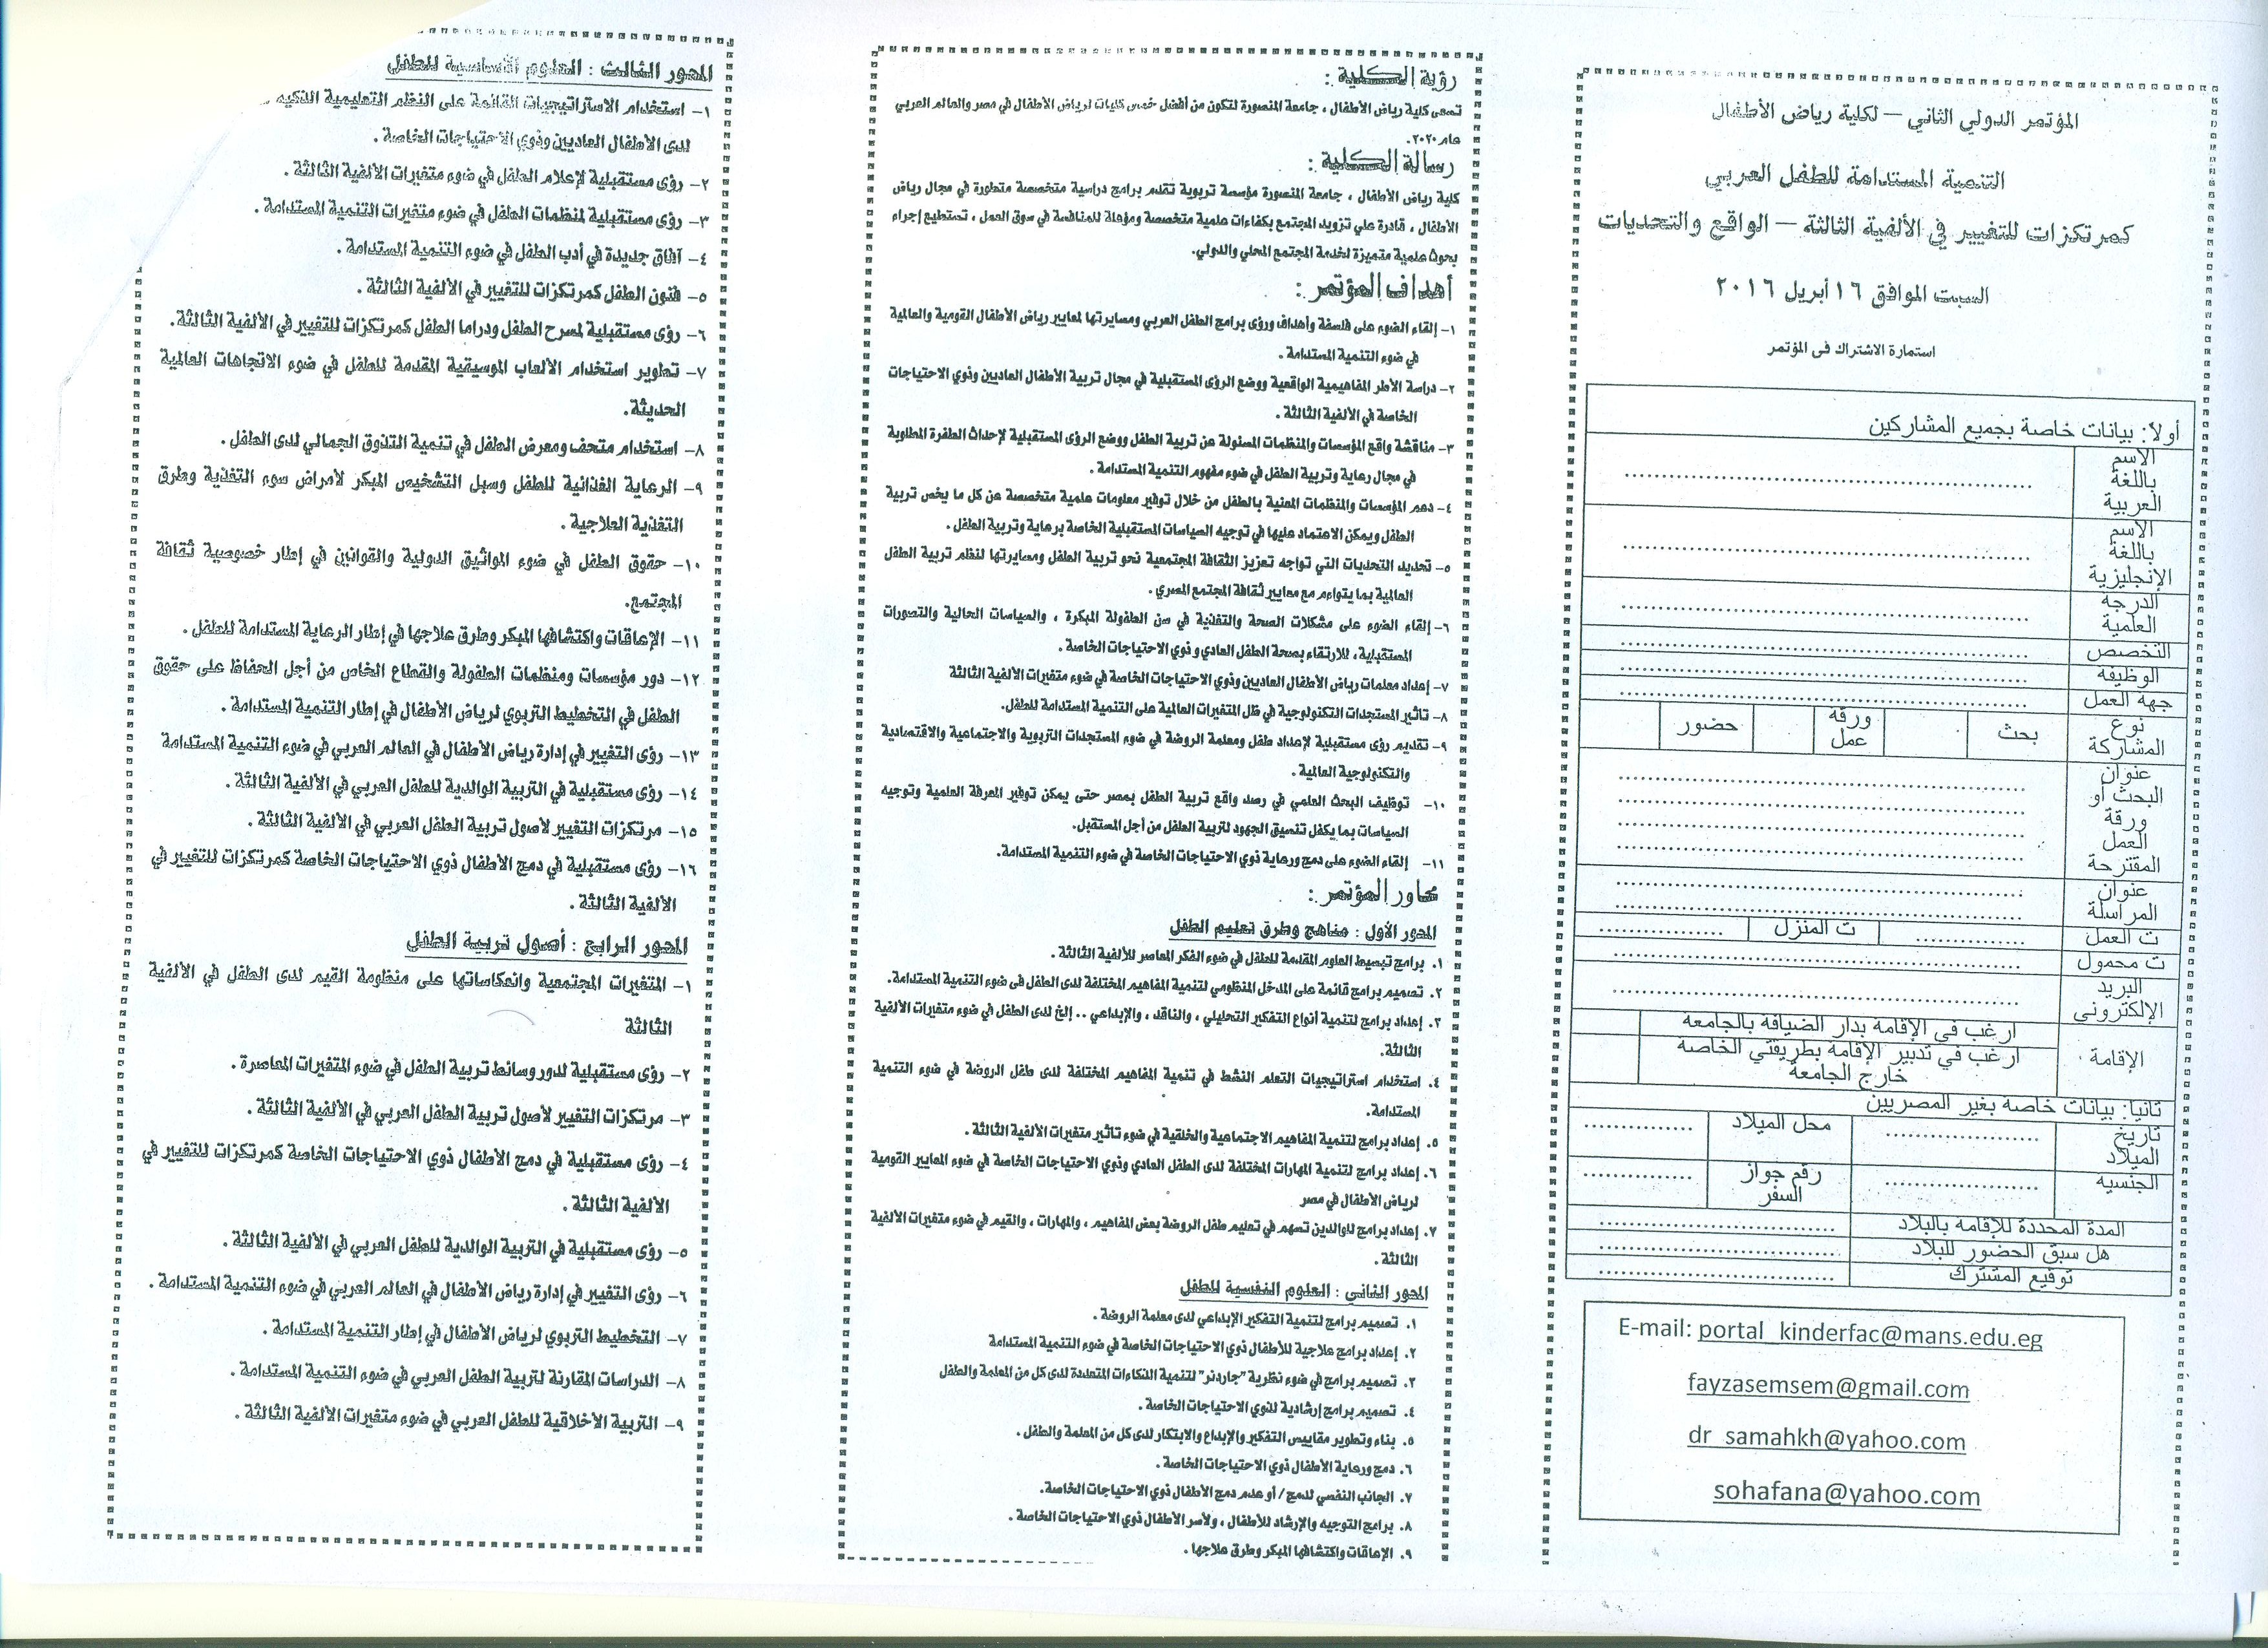 المؤتمر الدولي الثاني – لكلية رياض الأطفال
التنمية المستدامة للطفل العربي
كمرتكزات للتغيير في الألفية الثالثة – الواقع والتحديات
السبت الموافق ١٦ أبريل ٢٠١٦
استمارة الاشتراك فى المؤتمر
أولا: بيانات خاصة بجميع المشاركين
الاسم
باللغة
العربية
الاسم
باللغة
الإنجليزية
الدرجة
العلمية
التخصص
الوظيفة
جهة العمل
نوع المشاركة بحث ورقة عمل حضور
عنوان
البحث أو
ورقة
العمل
المقترحة
عنوان
المراسلة
ت العمل ت المنزل
ت محمول
البريد
الإلكترونى
الإقامة
ارغب فى الإقامة بدار الضيافة بالجامعة
ارغب في تدبير الإقامة بطريقتي الخاصة
خارج الجامعة
ثانيا: بيانات خاصة بغير المصريين
تاريخ الميلاد محل الميلاد
الجنسية رقم جواز السفر
المدة المحددة للإقامة بالبلاد
هل سبق الحضور للبلاد
توقيع المشترك
E-mail: portal_kinderfac@mans.edu.eg
fayzasemsem@gmail.com
dr_samahkh@yahoo.com
sohafana@yahoo.com
رؤية الكلية :
تسعى كلية رياض الأطفال ، جامعة المنصورة لتكون من أفضل خمس كليات لرياض الأطفال في مصر والعالم العربي
عام ٢٠٢٠.
رسالة الكلية :
كلية رياض الأطفال ، جامعة المنصورة مؤسسة تربوية تقدم برامج دراسية متخصصة متطورة في مجال رياض
الأطفال ، قادرة علي تزويد المجتمع بكفاءات علمية متخصصة ومؤهلة للمنافسة في سوق العمل ، تستطيع إجراء
بحوث علمية متميزة لخدمة المجتمع المحلي والدولي.
أهداف المؤتمر :
١- إلقاء الضوء على فلسفة وأهداف ورؤى برامج الطفل العربي ومسايرتها لمعايير رياض الأطفال القومية والعالمية
في ضوء التنمية المستدامة .
٢- دراسة الأطر المفاهيمية الواقعية ووضع الرؤى المستقبلية في مجال تربية الأطفال العاديين وذوي الاحتياجات
الخاصة في الألفية الثالثة .
٣- مناقشة واقع المؤسسات والمنظمات المسئولة عن تربية الطفل ووضع الرؤى المستقبلية لإحداث الطفرة المطلوبة
في مجال رعاية وتربية الطفل في ضوء مفهوم التنمية المستدامة .
٤- دعم المؤسسات والمنظمات المعنية بالطفل من خلال توفير معلومات علمية متخصصة عن كل ما يخص تربية
الطفل ويمكن الاعتماد عليها في توجيه السياسات المستقبلية الخاصة برعاية وتربية الطفل .
٥- تحديد التحديات التي تواجه تعزيز الثقافة المجتمعية نحو تربية الطفل ومسايرتها لنظم تربية الطفل
العالمية بما يتواءم مع معايير ثقافة المجتمع المصري .
٦- إلقاء الضوء على مشكلات الصحة والتغذية في سن الطفولة المبكرة ، والسياسات الحالية والتصورات
المستقبلية، للارتقاء بصحة الطفل العادي وذوي الاحتياجات الخاصة .
٧- إعداد معلمات رياض الأطفال العاديين وذوي الاحتياجات الخاصة في ضوء متغيرات الألفية الثالثة
٨- تأثير المستجدات التكنولوجية في ظل المتغيرات العالمية على التنمية المستدامة للطفل.
٩- تقديم رؤى مستقبلية لإعداد طفل ومعلمة الروضة في ضوء المستجدات التربوية والاجتماعية والاقتصادية
والتكنولوجية العالمية .
١٠- توظيف البحث العلمي في رصد واقع تربية الطفل بمصر حتى يمكن توفير المعرفة العلمية وتوجيه
السياسات بما يكفل تنسيق الجهود لتربية الطفل من أجل المستقبل.
١١- إلقاء الضوء على دمج ورعاية ذوي الاحتياجات الخاصة في ضوء التنمية المستدامة.
محاور المؤتمر :
المحور الأول : مناهج وطرق تعليم الطفل
١. برامج تبسيط العلوم المقدمة للطفل في ضوء الفكر المعاصر للألفية الثالثة .
٢. تصميم برامج قائمة على المدخل المنظومي لتنمية المفاهيم المختلفة لدى الطفل فى ضوء التنمية المستدامة.
٣. إعداد برامج لتنمية أنواع التفكير التحليلي ، والناقد ، والإبداعي .. إلخ لدى الطفل في ضوء متغيرات الألفية
الثالثة.
٤. استخدام استراتيجيات التعلم النشط في تنمية المفاهيم المختلفة لدى طفل الروضة في ضوء التنمية
المستدامة.
٥. إعداد برامج لتنمية المفاهيم الاجتماعية والخلقية في ضوء تأثير متغيرات الألفية الثالثة .
٦. إعداد برامج لتنمية المهارات المختلفة لدى الطفل العادي وذوي الاحتياجات الخاصة في ضوء المعايير القومية
لرياض الأطفال في مصر
٧. إعداد برامج للوالدين تسهم في تعليم طفل الروضة بعض المفاهيم ، والمهارات ، والقيم في ضوء متغيرات الألفية
الثالثة .
المحور الثاني : العلوم النفسية للطفل
١. تصميم برامج لتنمية التفكير الإبداعي لدى معلمة الروضة .
٢. إعداد برامج علاجية للأطفال ذوي الاحتياجات الخاصة في ضوء التنمية المستدامة
٣. تصميم برامج في ضوء نظرية "جاردنر" لتنمية الذكاءات المتعددة لدى كل من المعلمة والطفل
٤. تصميم برامج إرشادية لذوي الاحتياجات الخاصة .
٥. بناء وتطوير مقاييس التفكير والإبداع والابتكار لدى كل من المعلمة والطفل .
٦. دمج ورعاية الأطفال ذوي الاحتياجات الخاصة .
٧. الجانب النفسي للدمج / أو عدم دمج الأطفال ذوي الاحتياجات الخاصة.
٨. برامج التوجيه والإرشاد للأطفال ، ولأسر الأطفال ذوي الاحتياجات الخاصة .
٩. الإعاقات واكتشافها المبكر وطرق علاجها .
المحور الثالث : العلوم الأساسية للطفل
١- استخدام الاستراتيجيات القائمة على النظم التعليمية الذكية
لدى الأطفال العاديين وذوي الاحتياجات الخاصة .
٢- رؤى مستقبلية لإعلام الطفل في ضوء متغيرات الألفية الثالثة .
٣- رؤى مستقبلية لمنظمات الطفل في ضوء متغيرات التنمية المستدامة .
٤- آفاق جديدة في أدب الطفل في ضوء التنمية المستدامة .
٥- فنون الطفل كمرتكزات للتغيير في الألفية الثالثة .
٦- رؤى مستقبلية لمسرح الطفل ودراما الطفل كمرتكزات للتغيير في الألفية الثالثة.
٧- تطوير استخدام الألعاب الموسيقية المقدمة للطفل في ضوء الاتجاهات العالمية
الحديثة.
٨- استخدام متحف ومعرض الطفل في تنمية التذوق الجمالي لدى الطفل .
٩- الرعاية الغذائية للطفل وسبل التشخيص المبكر لأمراض سوء التغذية وطرق
التغذية العلاجية .
١٠- حقوق الطفل في ضوء المواثيق الدولية والقوانين في إطار خصوصية ثقافة
المجتمع.
١١- الإعاقات واكتشافها المبكر وطرق علاجها في إطار الرعاية المستدامة للطفل .
١٢- دور مؤسسات ومنظمات الطفولة والقطاع الخاص من أجل الحفاظ على حقوق
الطفل في التخطيط التربوي لرياض الأطفال في إطار التنمية المستدامة .
١٣- رؤى التغيير في إدارة رياض الأطفال في العالم العربي في ضوء التنمية المستدامة
١٤- رؤى مستقبلية في التربية الوالدية للطفل العربي في الألفية الثالثة .
١٥- مرتكزات التغيير لأصول تربية الطفل العربي في الألفية الثالثة .
١٦- رؤى مستقبلية في دمج الأطفال ذوي الاحتياجات الخاصة كمرتكزات للتغيير في
الألفية الثالثة .
المحور الرابع : أصول تربية الطفل
١- المتغيرات المجتمعية وانعكاساتها على منظومة القيم لدى الطفل في الألفية
الثالثة
٢- رؤى مستقبلية لدور وسائط تربية الطفل في ضوء المتغيرات المعاصرة .
٣- مرتكزات التغيير لأصول تربية الطفل العربي في الألفية الثالثة .
٤- رؤى مستقبلية في دمج الأطفال ذوي الاحتياجات الخاصة كمرتكزات للتغيير في
الألفية الثالثة .
٥- رؤى مستقبلية في التربية الوالدية للطفل العربي في الألفية الثالثة .
٦- رؤى التغيير في إدارة رياض الأطفال في العالم العربي في ضوء التنمية المستدامة .
٧- التخطيط التربوي لرياض الأطفال في إطار التنمية المستدامة .
٨- الدراسات المقارنة لتربية الطفل العربي في ضوء التنمية المستدامة .
٩- التربية الأخلاقية للطفل العربي في ضوء متغيرات الألفية الثالثة .